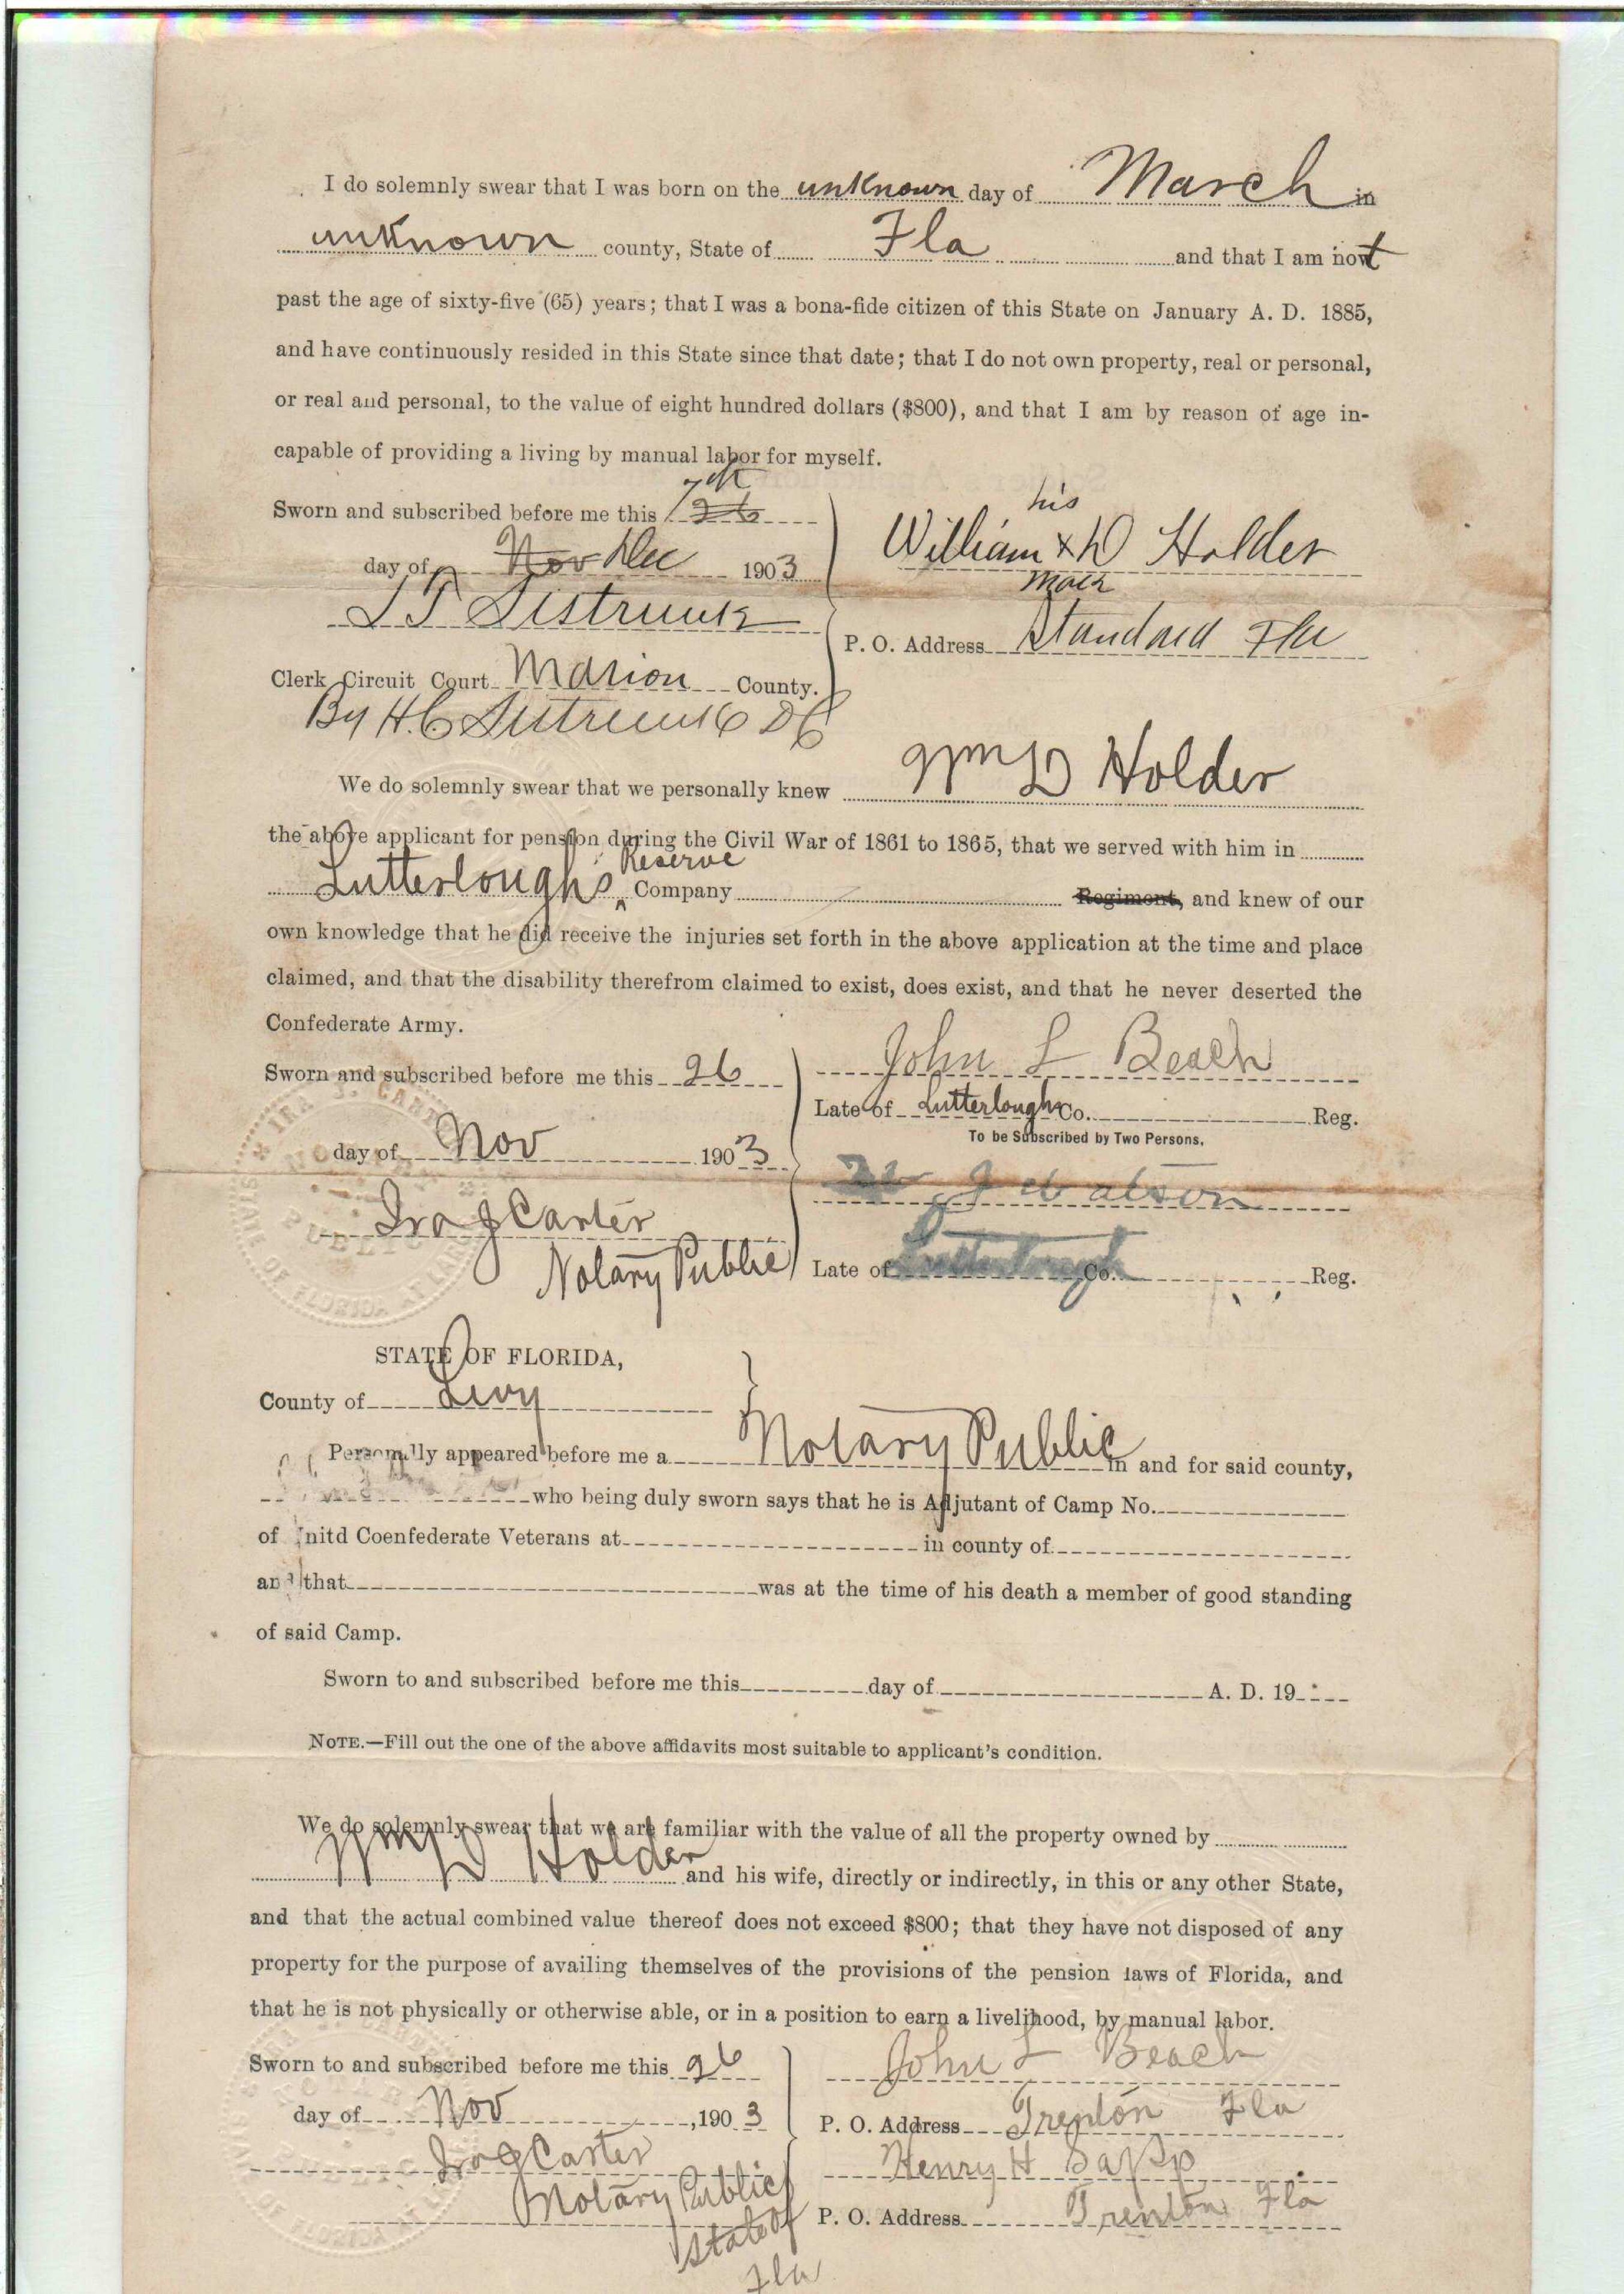 I do solemnly swear that I was born on the unknown day of March in
unknown county, State of Fla and that I am not
past the age of sixty-five (65) years; that I was a bona-fide citizen of this State on January A. D. 1885,
and have continuously resided in this State since that date; that I do not own property, real or personal,
or real and personal, to the value of eight hundred dollars ($800), and that I am by reason of age in-
capable of providing a living by manual labor for myself.
Sworn and subscribed before me this 7th 26
his
day of Nov Dec 1903
William x D Holder
mark
S T Sistrunk
P. O. Address Standard Fla
Clerk Circuit Court Marion County.
By H. C Sistrunk D C
We do solemnly swear that we personally knew Wm D Holder
the above applicant for pension during the Civil War of 1861 to 1865, that we served with him in
Lutterloughs Reserve Company Regiment, and knew of our
own knowledge that he did receive the injuries set forth in the above application at the time and place
claimed, and that the disability therefrom claimed to exist, does exist, and that he never deserted the
Confederate Army.
Sworn and subscribed before me this 26
John L Beach
Late of Lutterloughs Co. Reg.
To be Subscribed by Two Persons.
day of Nov 1903
J Watson
Ira J Carter
Notary Public
Late of Lutterlough Co. Reg.
STATE OF FLORIDA,
County of Levy
Personally appeared before me a Notary Public in and for said county,
who being duly sworn says that he is Adjutant of Camp No.
of Unitd Coenfederate Veterans at in county of
and that was at the time of his death a member of good standing
of said Camp.
Sworn to and subscribed before me this day of A. D. 19
NOTE.—Fill out the one of the above affidavits most suitable to applicant's condition.
We do solemnly swear that we are familiar with the value of all the property owned by
Wm D Holder and his wife, directly or indirectly, in this or any other State,
and that the actual combined value thereof does not exceed $800; that they have not disposed of any
property for the purpose of availing themselves of the provisions of the pension laws of Florida, and
that he is not physically or otherwise able, or in a position to earn a livelihood, by manual labor.
Sworn to and subscribed before me this 26
John L Beach
day of Nov, 1903
P. O. Address Trenton Fla
Ira J Carter
Henry H Sapp
Notary Public
P. O. Address Trenton Fla
State of
Fla